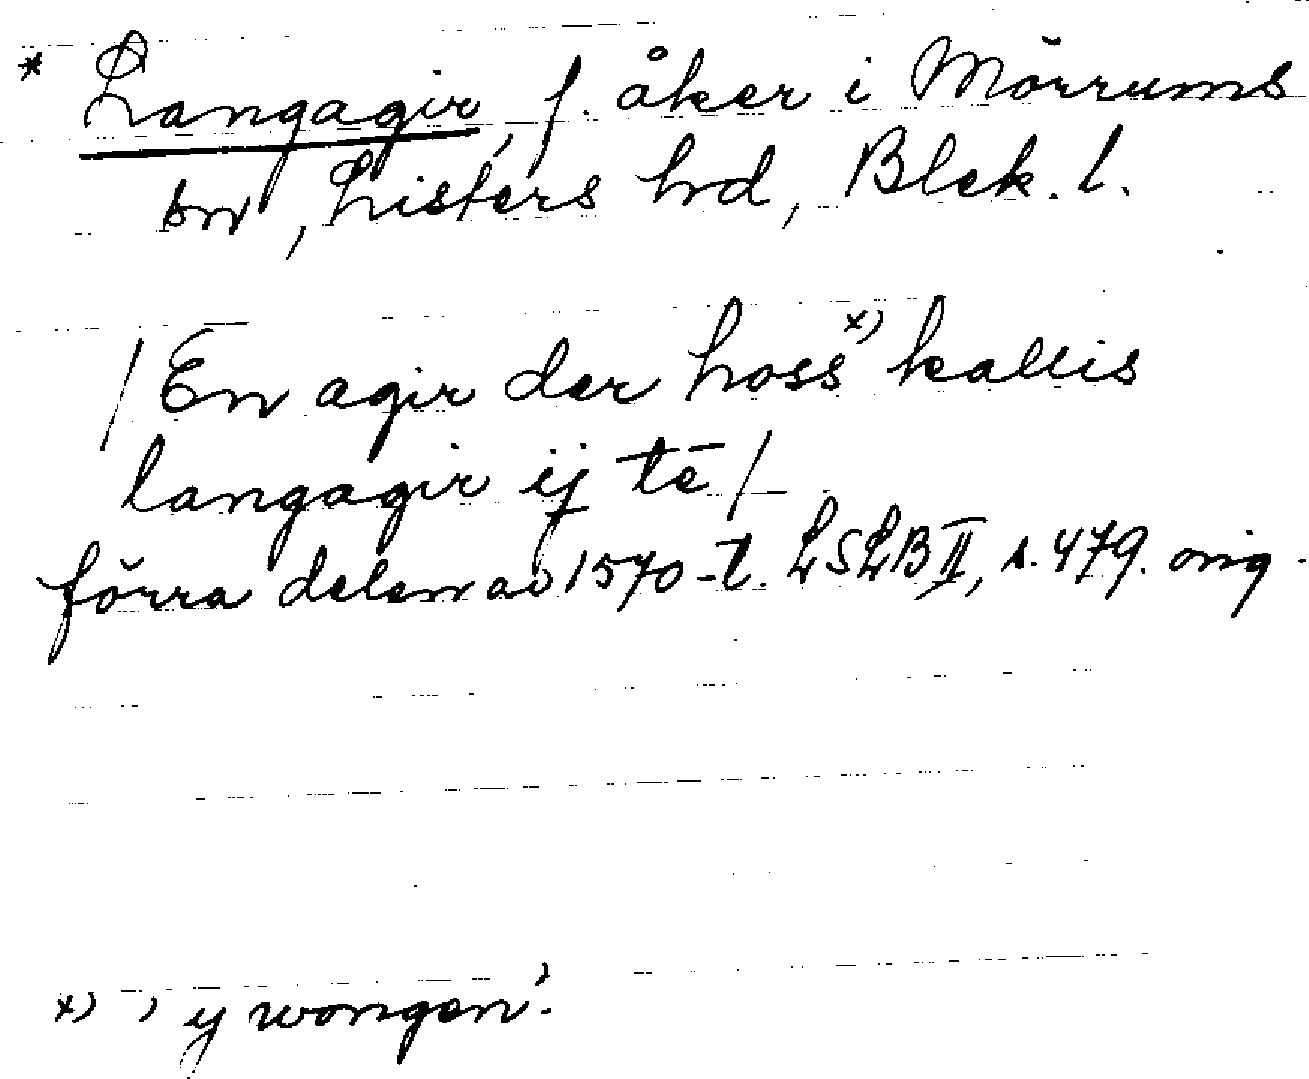 * Langagir, f. åker i Mörrums
sn, Listers hd, Blek. l.
/ En agir der hoss x) kallis
langagir ij tē /
förra delen av 1570-t. LSLB II, s. 479. orig.
x) 'ij wongen'.